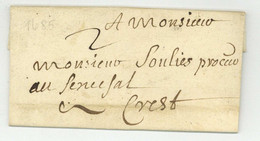 1684
A Monsieur
2
Monsieur Soulies procur
au Senesal
Crest